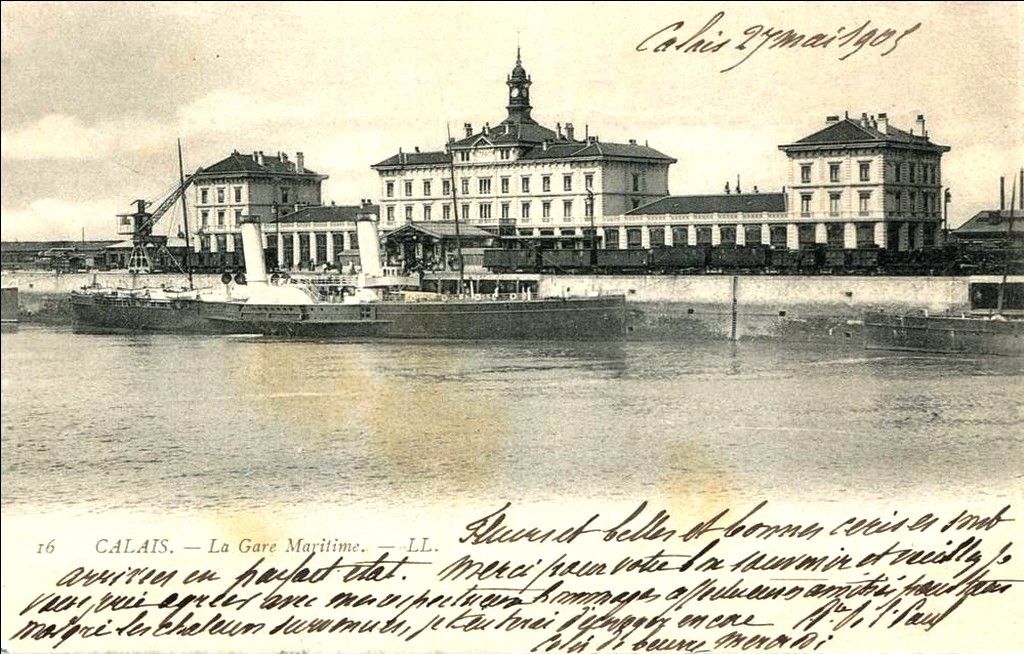 Calais 27 mai 1905
16 CALAIS. — La Gare Maritime. — LL.
Fleurs et belles et bonnes cerises sont
arrivées en parfait état. Merci pour votre bon souvenir et veuillez je
vous prie agréer avec mes respectueux hommages affectueuses amitiés pour tous
malgré les chaleurs survenues, je tenterai d'envoyer encore
colis de beurre mercredi